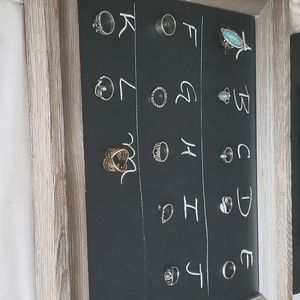 A
B
C
D
E
F
G
H
I
J
K
L
M